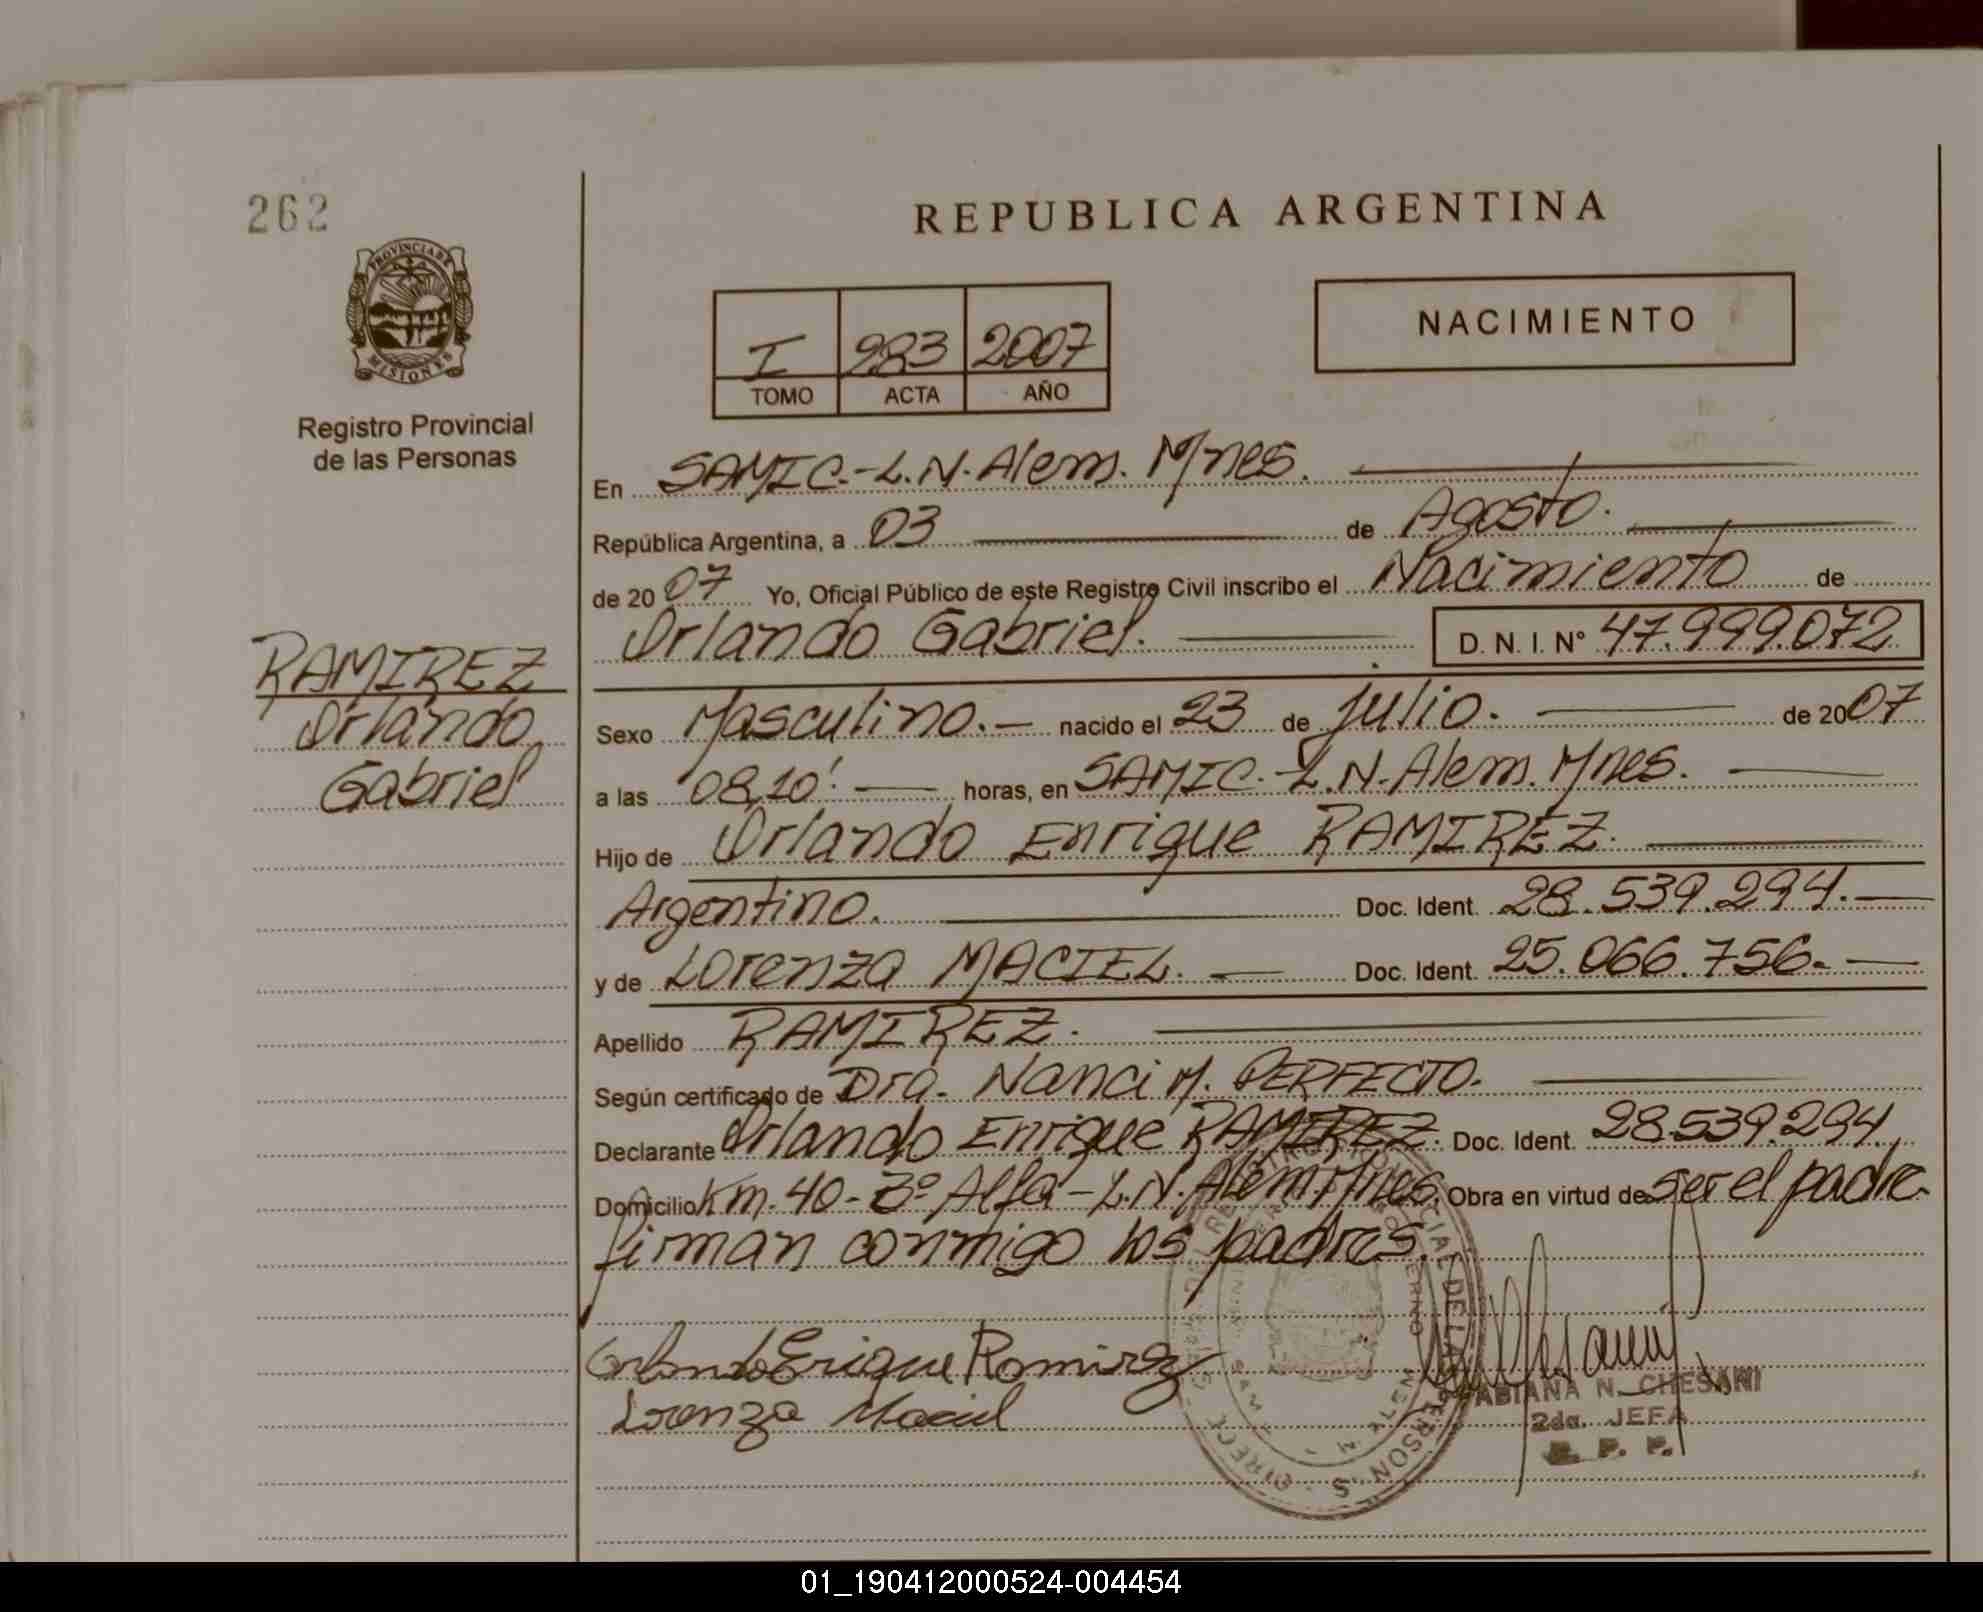 262
REPUBLICA ARGENTINA
PROVINCIA DE
MISIONES
Registro Provincial
de las Personas
I 283 2007
TOMO ACTA AÑO
NACIMIENTO
En SAMIC.-L.N.Alem. Mnes.
República Argentina, a 03 de Agosto.
de 2007 Yo, Oficial Público de este Registro Civil inscribo el Nacimiento de
Orlando Gabriel. D. N. I. Nº 47.999.072
RAMIREZ
Orlando
Gabriel
Sexo Masculino.- nacido el 23 de julio. de 2007
a las 08,10'. horas, en SAMIC.-L.N.Alem. Mnes.
Hijo de Orlando Enrique RAMIREZ.
Argentino. Doc. Ident. 28.539.294.-
y de Lorenza MACIEL. Doc. Ident. 25.066.756.-
Apellido RAMIREZ.
Según certificado de Dra. Nanci M. PERFECTO.
Declarante Orlando Enrique RAMIREZ. Doc. Ident. 28.539.294.
Domicilio Km. 40- Bº Alfa-L.N.Alem. Mnes. Obra en virtud de ser el padre.
firman conmigo los padres.
Orlando Enrique Ramirez
Lorenza Maciel
FABIANA N. CHESANI
2da. JEFA
R. P. P.
01_190412000524-004454